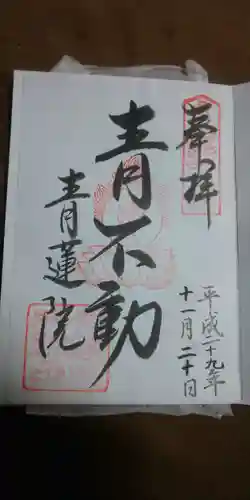 奉拝
平成二十九年
十一月二十日
青不動
青蓮院